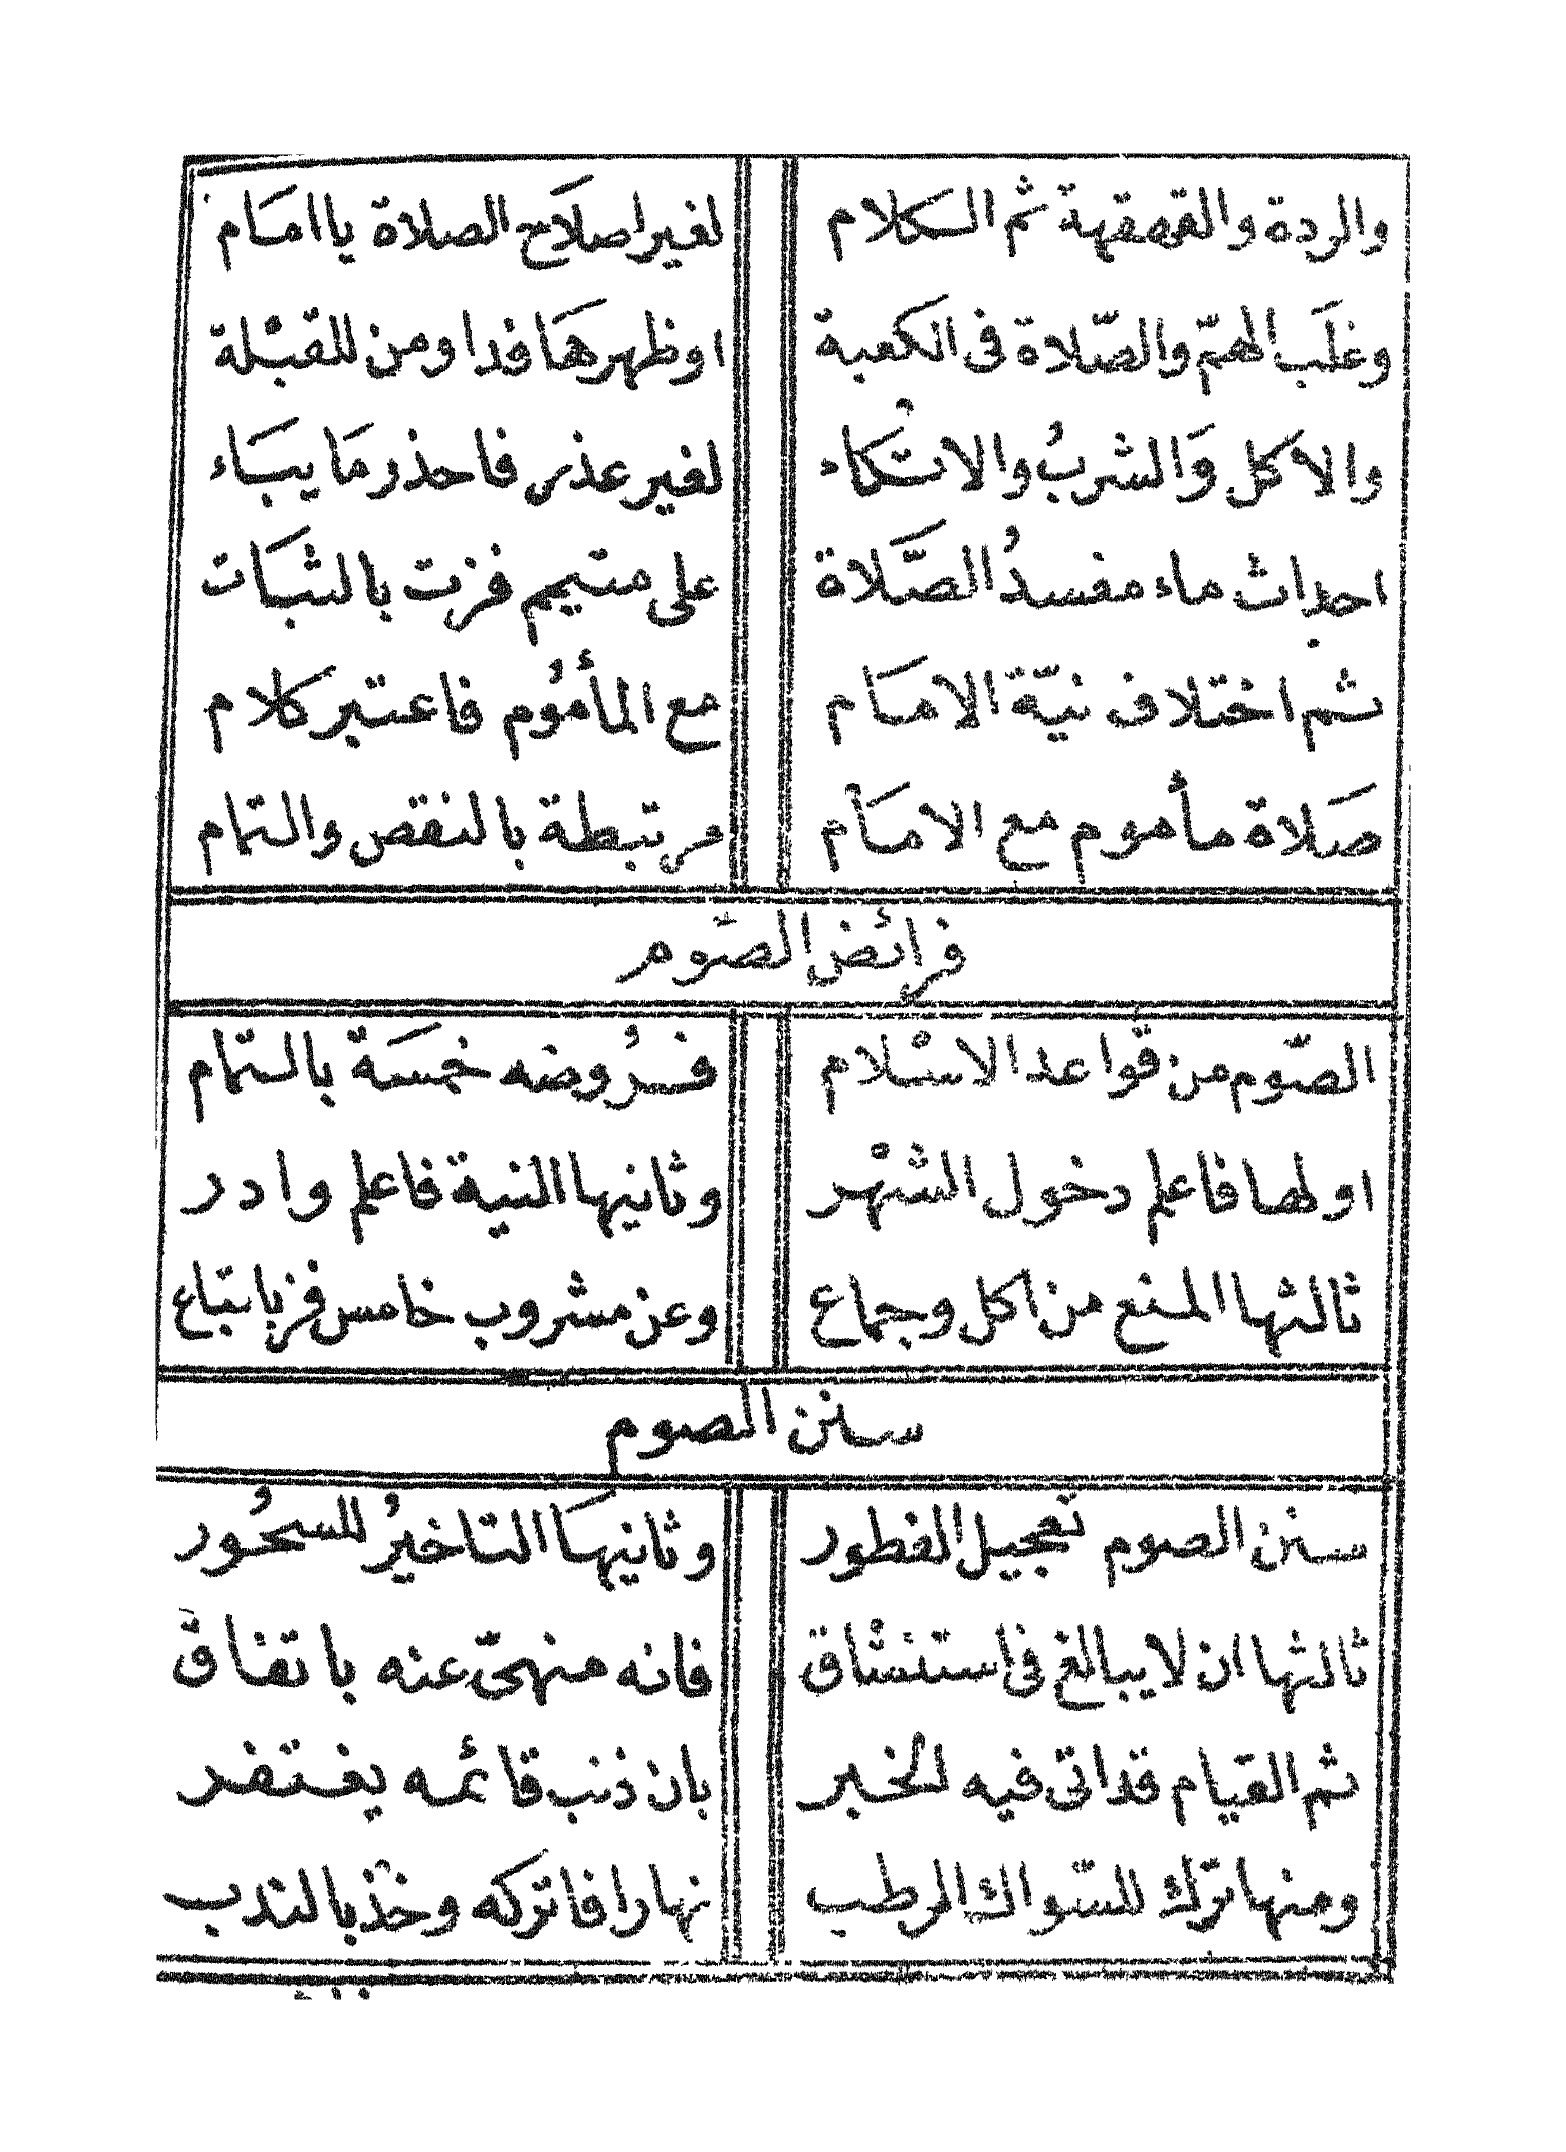 والردة والقهقهة ثم الكلام لغير اصلاح الصلاة يا امام
وغلب الهمّ والصّلاة فى الكعبة او ظهرها فذا ومن للقبْلة
والاكل والشربُ والاتكاء لغير عذر فاحذر ما يباء
احداث ماء مفسدُ الصَّلاة على متيمم فزت بالثبات
ثم اختلاف نيّة الامام مع المأمُوم فاعتبر كلام
صلاة مأموم مع الامام مرتبطة بالنقص والتمام
فرائض الصّوم
الصّوم من قواعد الاسْلام فرُوضه خمسة بالتمام
اولها فاعلم دخول الشهْر وثانيها النية فاعلم وادر
ثالثها المنع من اكل وجماع وعن مشروب خامس فز باتباع
سنن الصوم
سنن الصوم تعجيل الفطور وثانيها التاخيرُ للسحُور
ثالثها ان لا يبالغ فى استنشاق فانه منهىّ عنه باتفاق
ثم القيام قد اتى فيه الخبر بان ذنب قائمه يغتفر
ومنها ترك للسّواك الرطب نهارا فاتركه وخذ بالندب